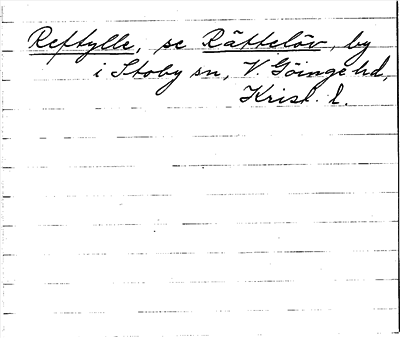 Reftylle, se Rätteløv, by
i Stoby sn, V. Göinge hd,
Krist. l.